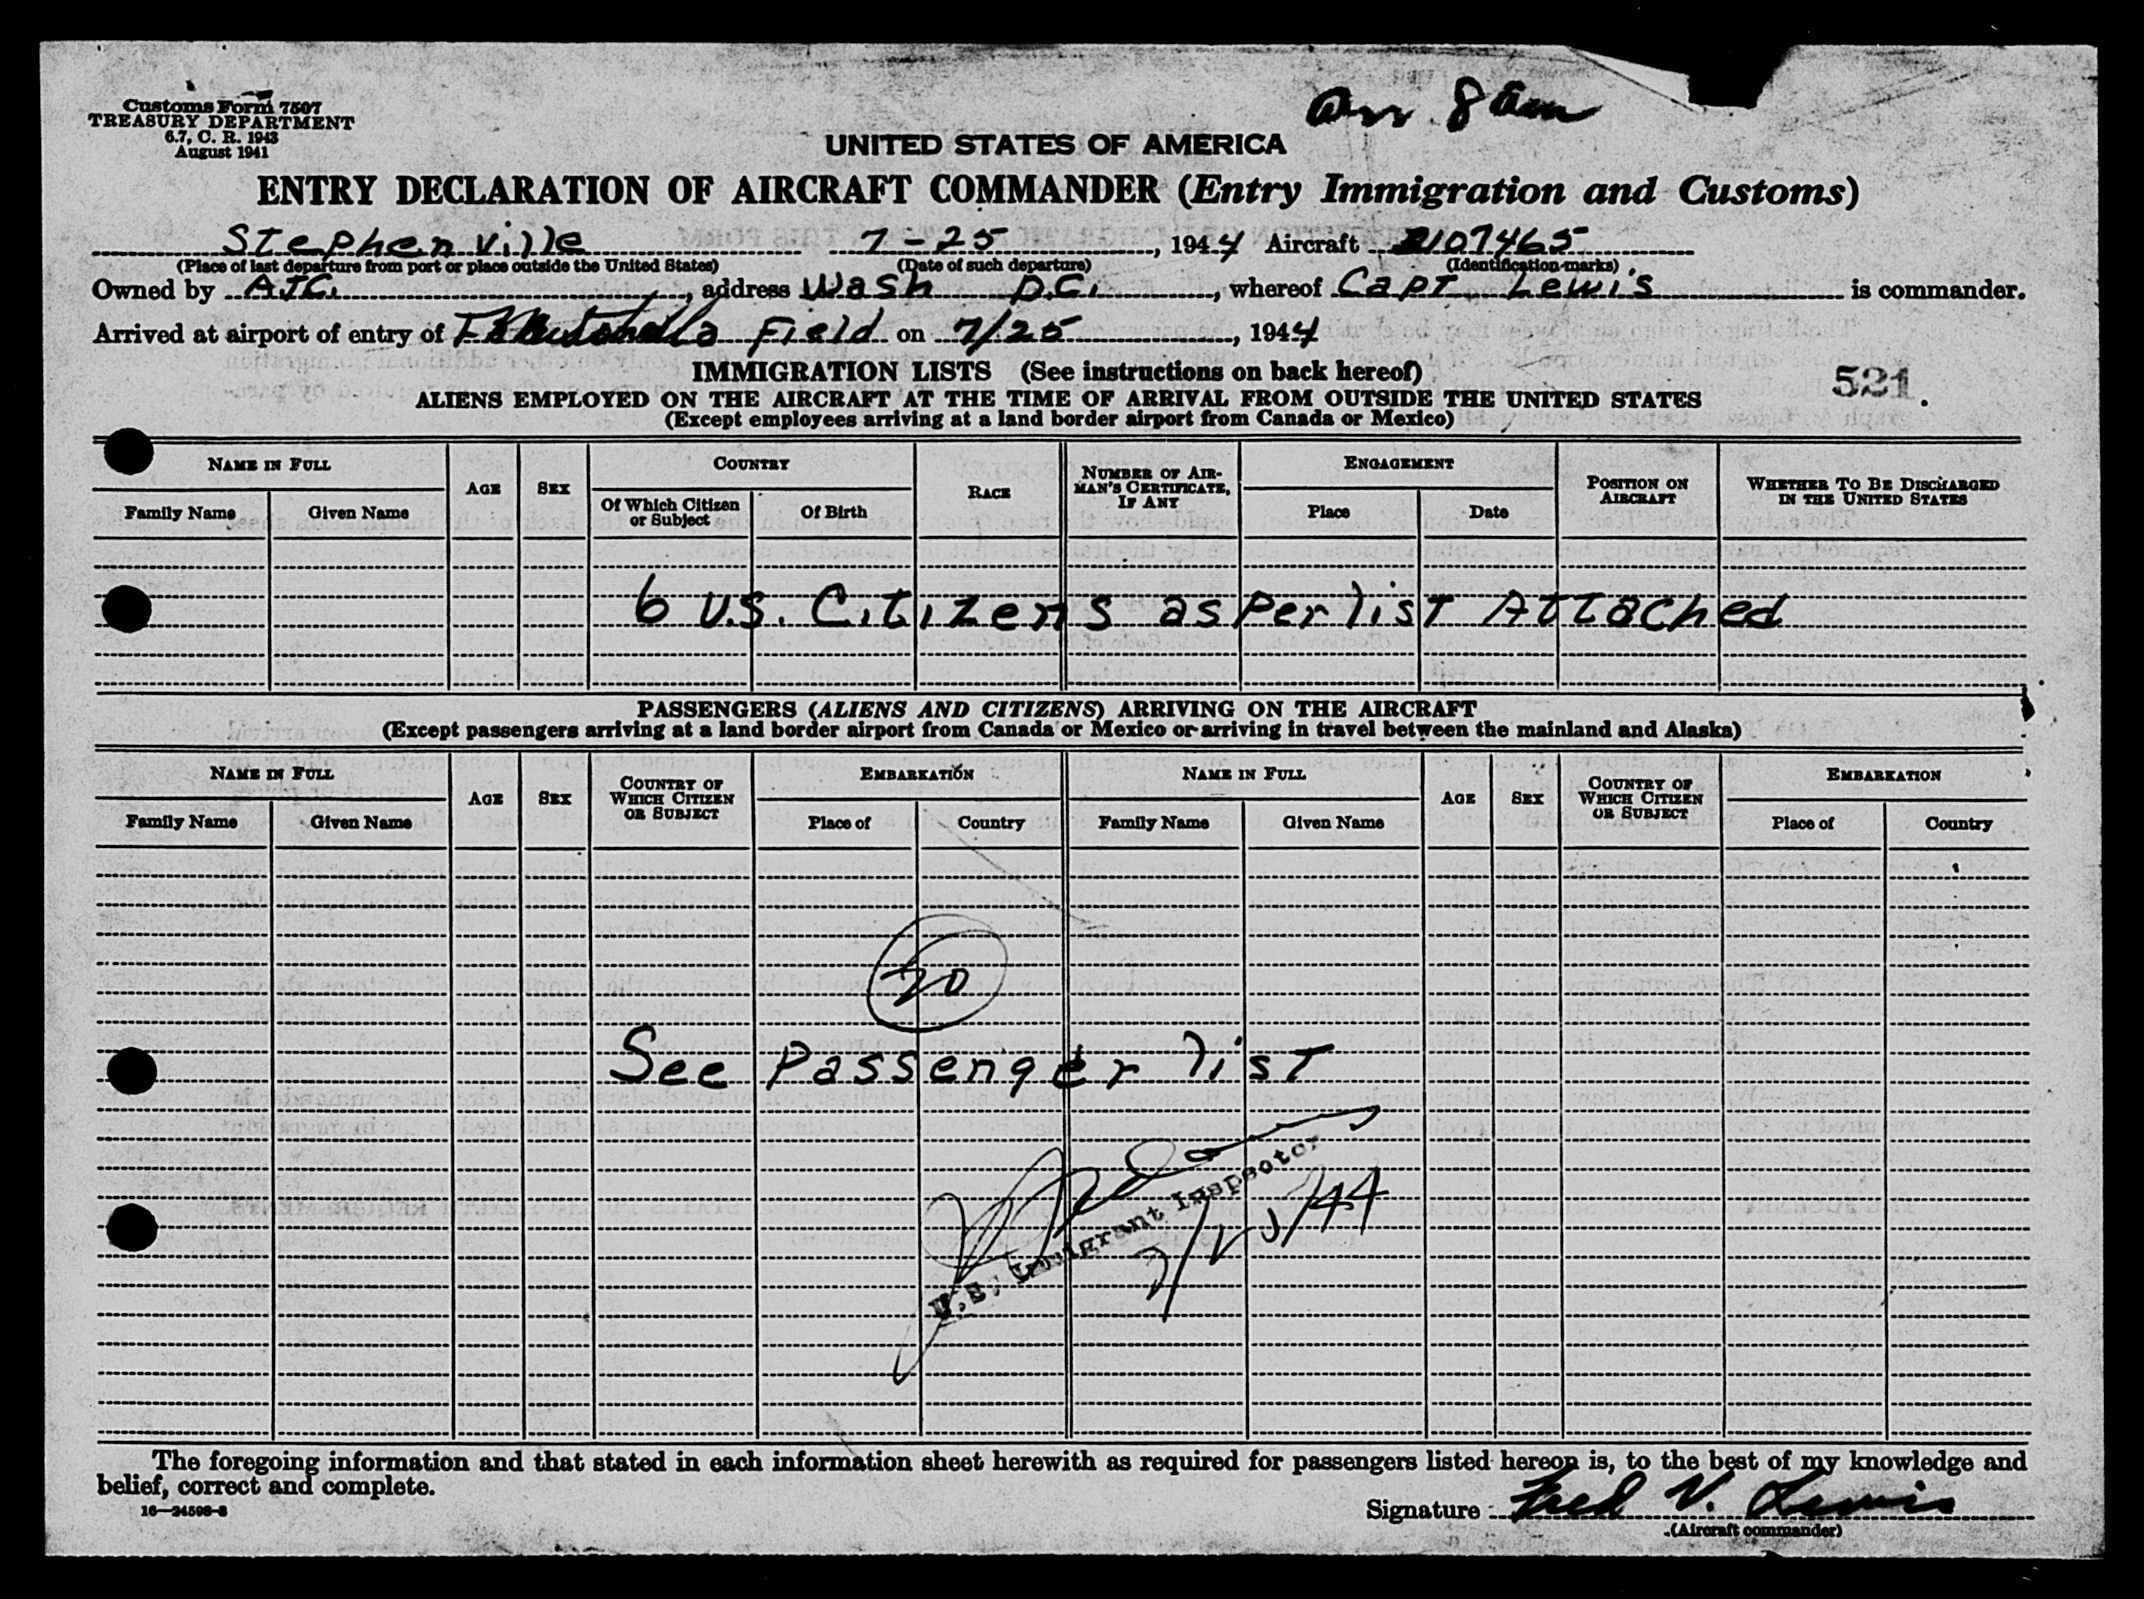 Arr. 8 am
Customs Form 7507
TREASURY DEPARTMENT
6.7, C. R. 1943
August 1941
UNITED STATES OF AMERICA
ENTRY DECLARATION OF AIRCRAFT COMMANDER (Entry Immigration and Customs)
Stephenville 7-25, 1944 Aircraft 2107465
(Place of last departure from port or place outside the United States) (Date of such departure) (Identification marks)
Owned by address Wash D.C., whereof Capt Lewis is commander.
Arrived at airport of entry of Field on 7/25, 1944
IMMIGRATION LISTS (See instructions on back hereof)
521
ALIENS EMPLOYED ON THE AIRCRAFT AT THE TIME OF ARRIVAL FROM OUTSIDE THE UNITED STATES
(Except employees arriving at a land border airport from Canada or Mexico)
NAME IN FULL AGE SEX COUNTRY RACE NUMBER OF AIRMAN'S CERTIFICATE, IF ANY ENGAGEMENT POSITION ON AIRCRAFT WHETHER TO BE DISCHARGED IN THE UNITED STATES
Family Name Given Name Of Which Citizen or Subject Of Birth Place Date
6 U.S. Citizens as Per list Attached
PASSENGERS (ALIENS AND CITIZENS) ARRIVING ON THE AIRCRAFT
(Except passengers arriving at a land border airport from Canada or Mexico or arriving in travel between the mainland and Alaska)
NAME IN FULL AGE SEX COUNTRY OF WHICH CITIZEN OR SUBJECT EMBARKATION NAME IN FULL AGE SEX COUNTRY OF WHICH CITIZEN OR SUBJECT EMBARKATION
Family Name Given Name Place of Country Family Name Given Name Place of Country
20
See Passenger list
U.S. Immigrant Inspector
7/25/44
The foregoing information and that stated in each information sheet herewith as required for passengers listed hereon is, to the best of my knowledge and
belief, correct and complete.
16—24598-3
Signature Fred V. Lewis
(Aircraft commander)